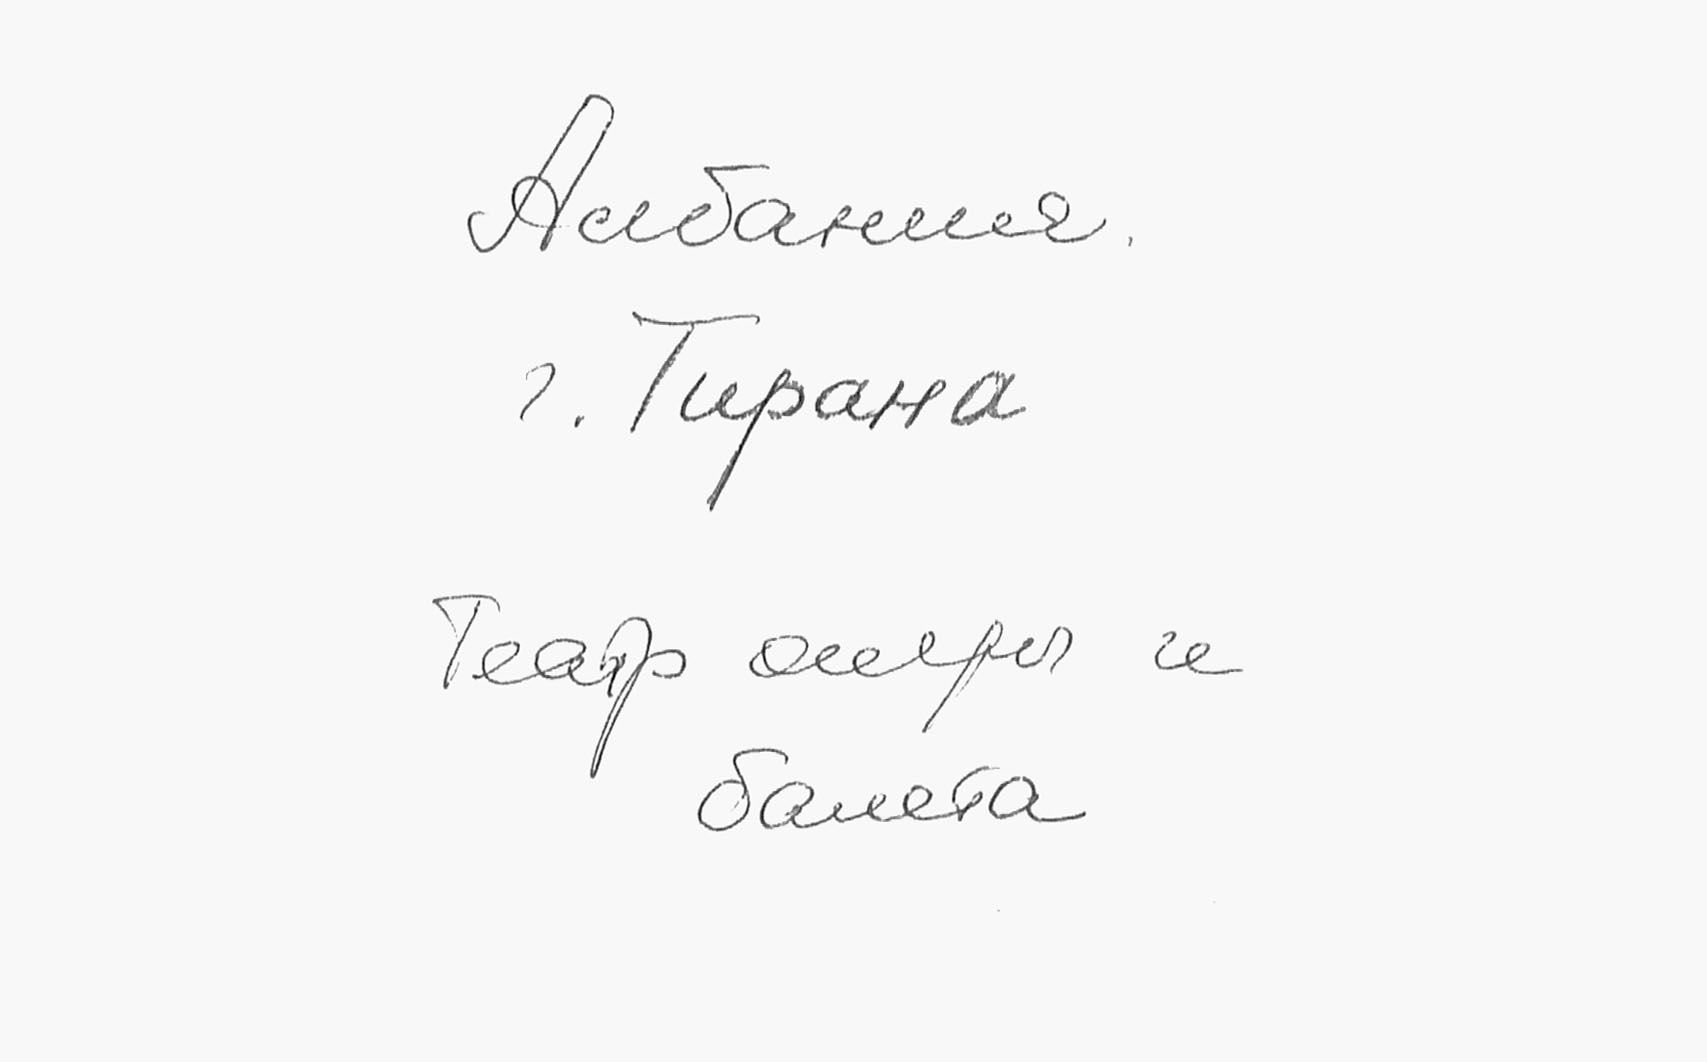 Албания.
г. Тирана
Театр оперы и
балета